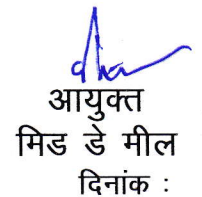 आयुक्त
मिड डे मील
दिनांक :